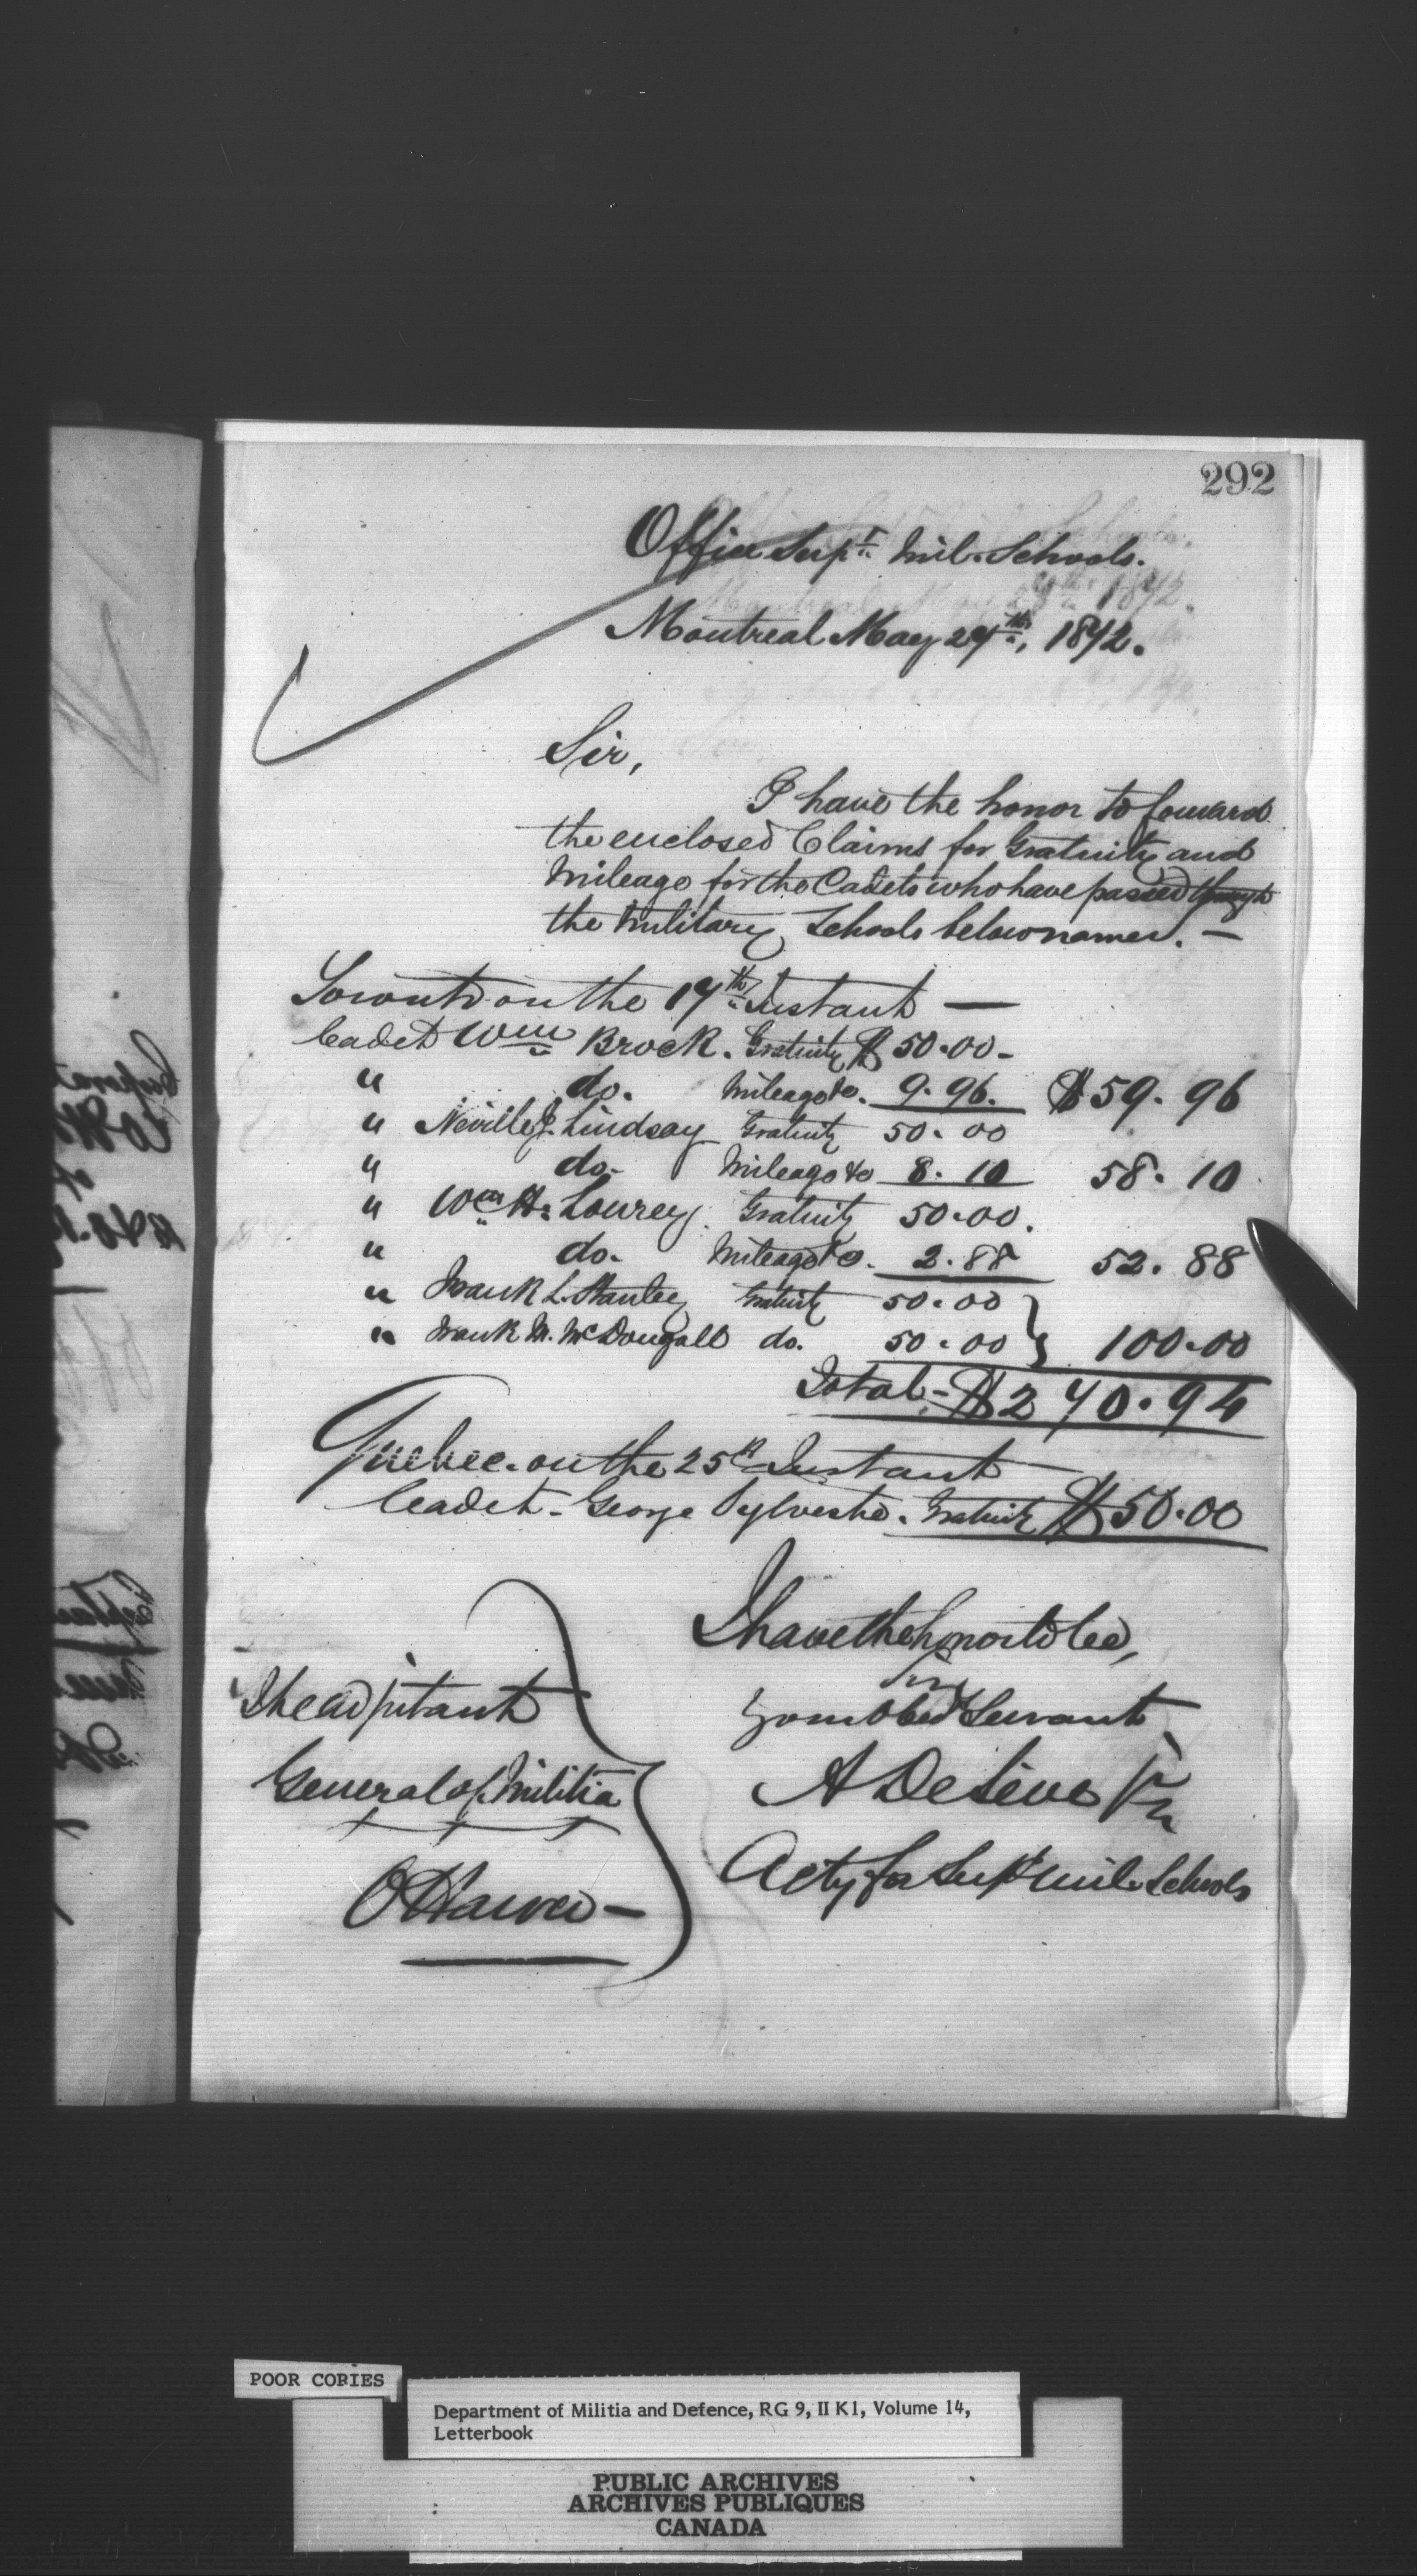 292
Office Supt. Mil. Schools.
Montreal May 27th, 1872.
Sir,
I have the honor to forward
the enclosed Claims for Gratuity and
Mileage for the Cadets who have passed through
the Military Schools below named. —
Toronto on the 17th Instant —
Cadet Wm Brock. Gratuity $50.00 -
" do. Mileage to. 9.96. $59.96
" Neville J. Lindsay Gratuity 50.00
" do- Mileage to 8.10 58.10
" Wm H. Lourey. Gratuity 50.00.
" do- Mileage to. 2.88 52.88
" Frank L. Stanley Gratuity 50.00
" Frank M. McDougall do. 50.00 } 100.00
Total - $270.94
Quebec. on the 25th Instant —
Cadet - George Sylvestre. Gratuity $50.00
I have the honor to be,
Sir
Your Obed Servant
A DeLieve
Actg for Supt Mil. Schools
The Adjutant
General of Militia
Ottawa —
POOR COPIES
Department of Militia and Defence, RG 9, II K1, Volume 14,
Letterbook
PUBLIC ARCHIVES
ARCHIVES PUBLIQUES
CANADA